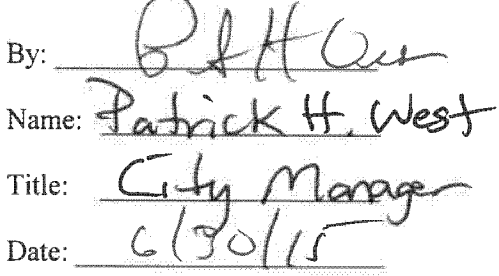 By:
Name: Patrick H. West
Title: City Manager
Date: 6/30/15